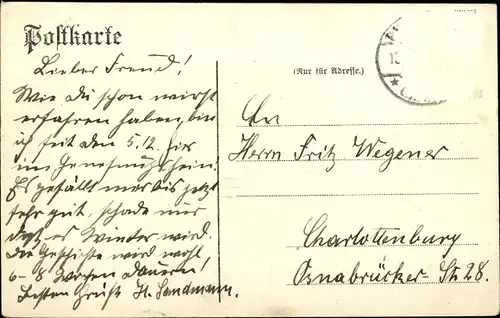 Postkarte
Lieber Freund!
Wie Du schon wirst
erfahren haben, bin
ich seit dem 5.12. hier
im Genesungsheim.
Es gefällt mir bis jetzt
sehr gut, schade nur
daß es Winter wird.
Die Geschichte wird wohl
6-8 Wochen dauern!
Besten Gruß H. Sandmann.
(Nur für Adresse.)
An
Herrn Fritz Wegener
Charlottenburg
Osnabrücker St. 28.